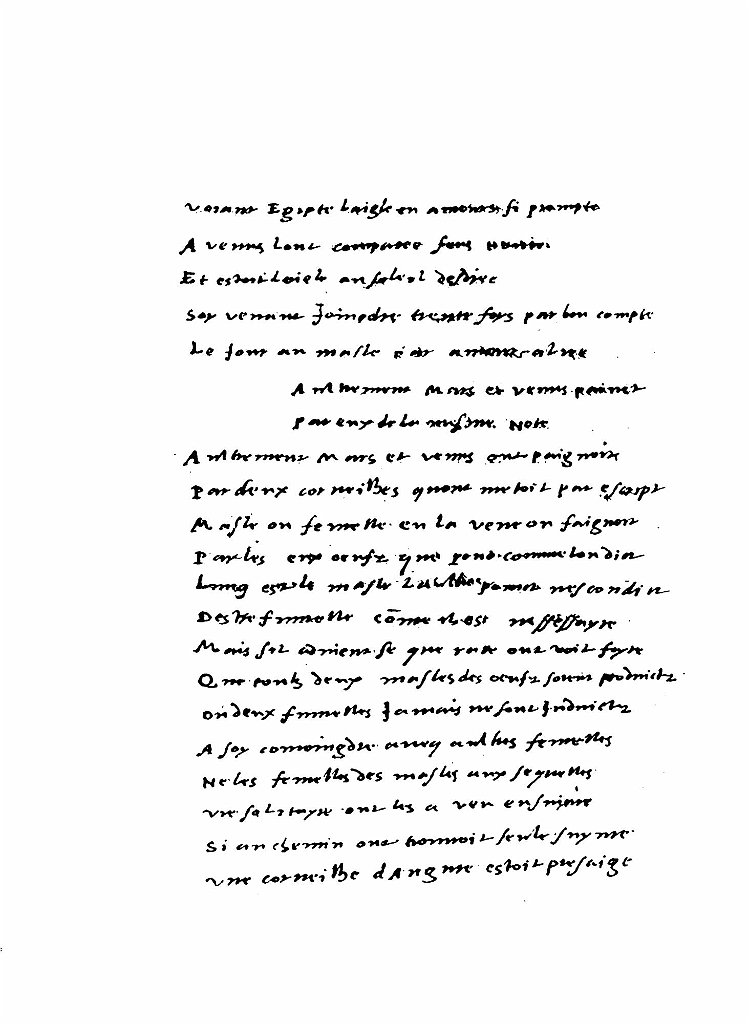 voiant Egipte laigle en amours si prompte
A venus lont comparee sans
Et estoit loisele au soleil desdiee
Soy venant Joingdre trente foys par bon compte
Le Jour au masle
Aultrement Mars et venus painct
Par eux de la mesme. Note
Aultrement Mars et venus ont paignoit
Par deux corneilhes quont metoit par escript
Masle ou femelle en la veneon faignoit
Par les eux oeufz que pond comme lon dict
Lung est le masle Laultre jamais nescondit
Destre femelle cõme il est
Mais sil advient se que rare ont voit fayre
Que toutz deux masles des oeufz soient produictz
ou deux femelles Jamais ne sont Induictz
A soy conioingdre avecq aultres femelles
Ne les femelles des masles aux sequelles
vie solitayre ont les a veu ensuivre
Si au chemin ont trouvoit seule suyvre
une corneilhe dAngure estoit presaige